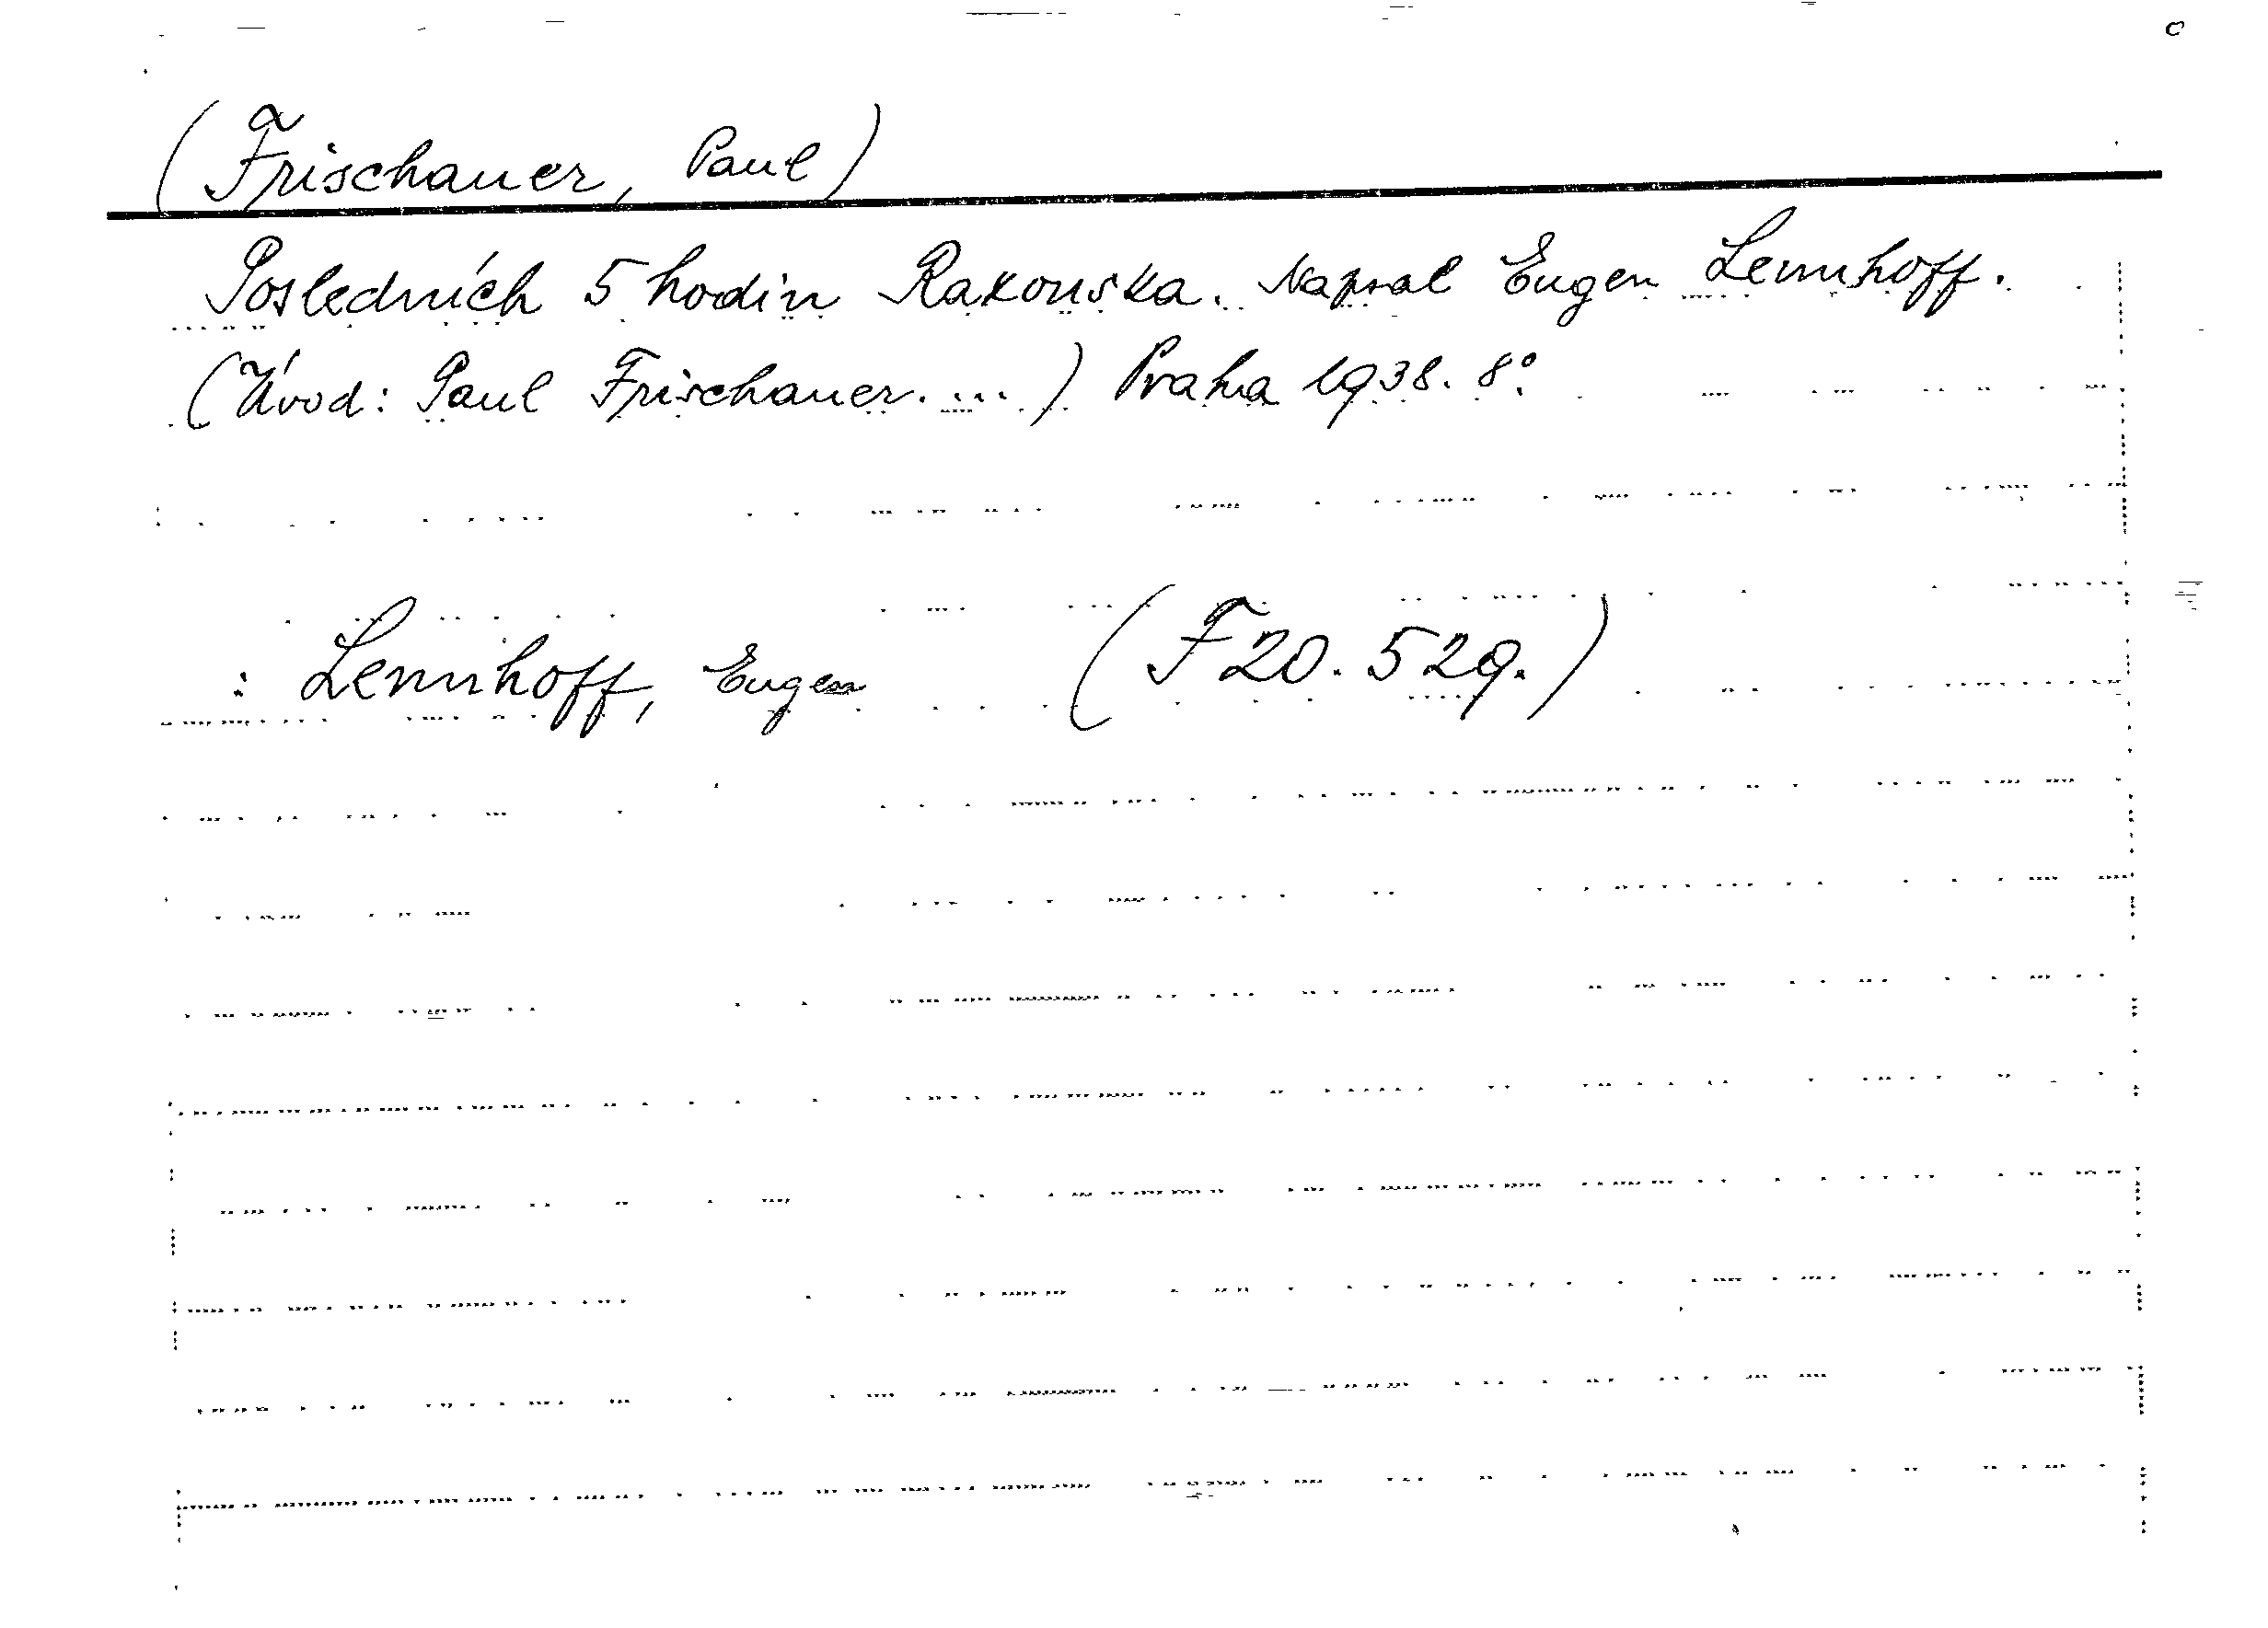 (Frischauer, Paul)
Posledních 5 hodin Rakouska. Napsal Eugen Lennhoff.
(Úvod: Paul Frischauer. ...) Praha 1938. 8°.
: Lennhoff, Eugen (F 20.529.)